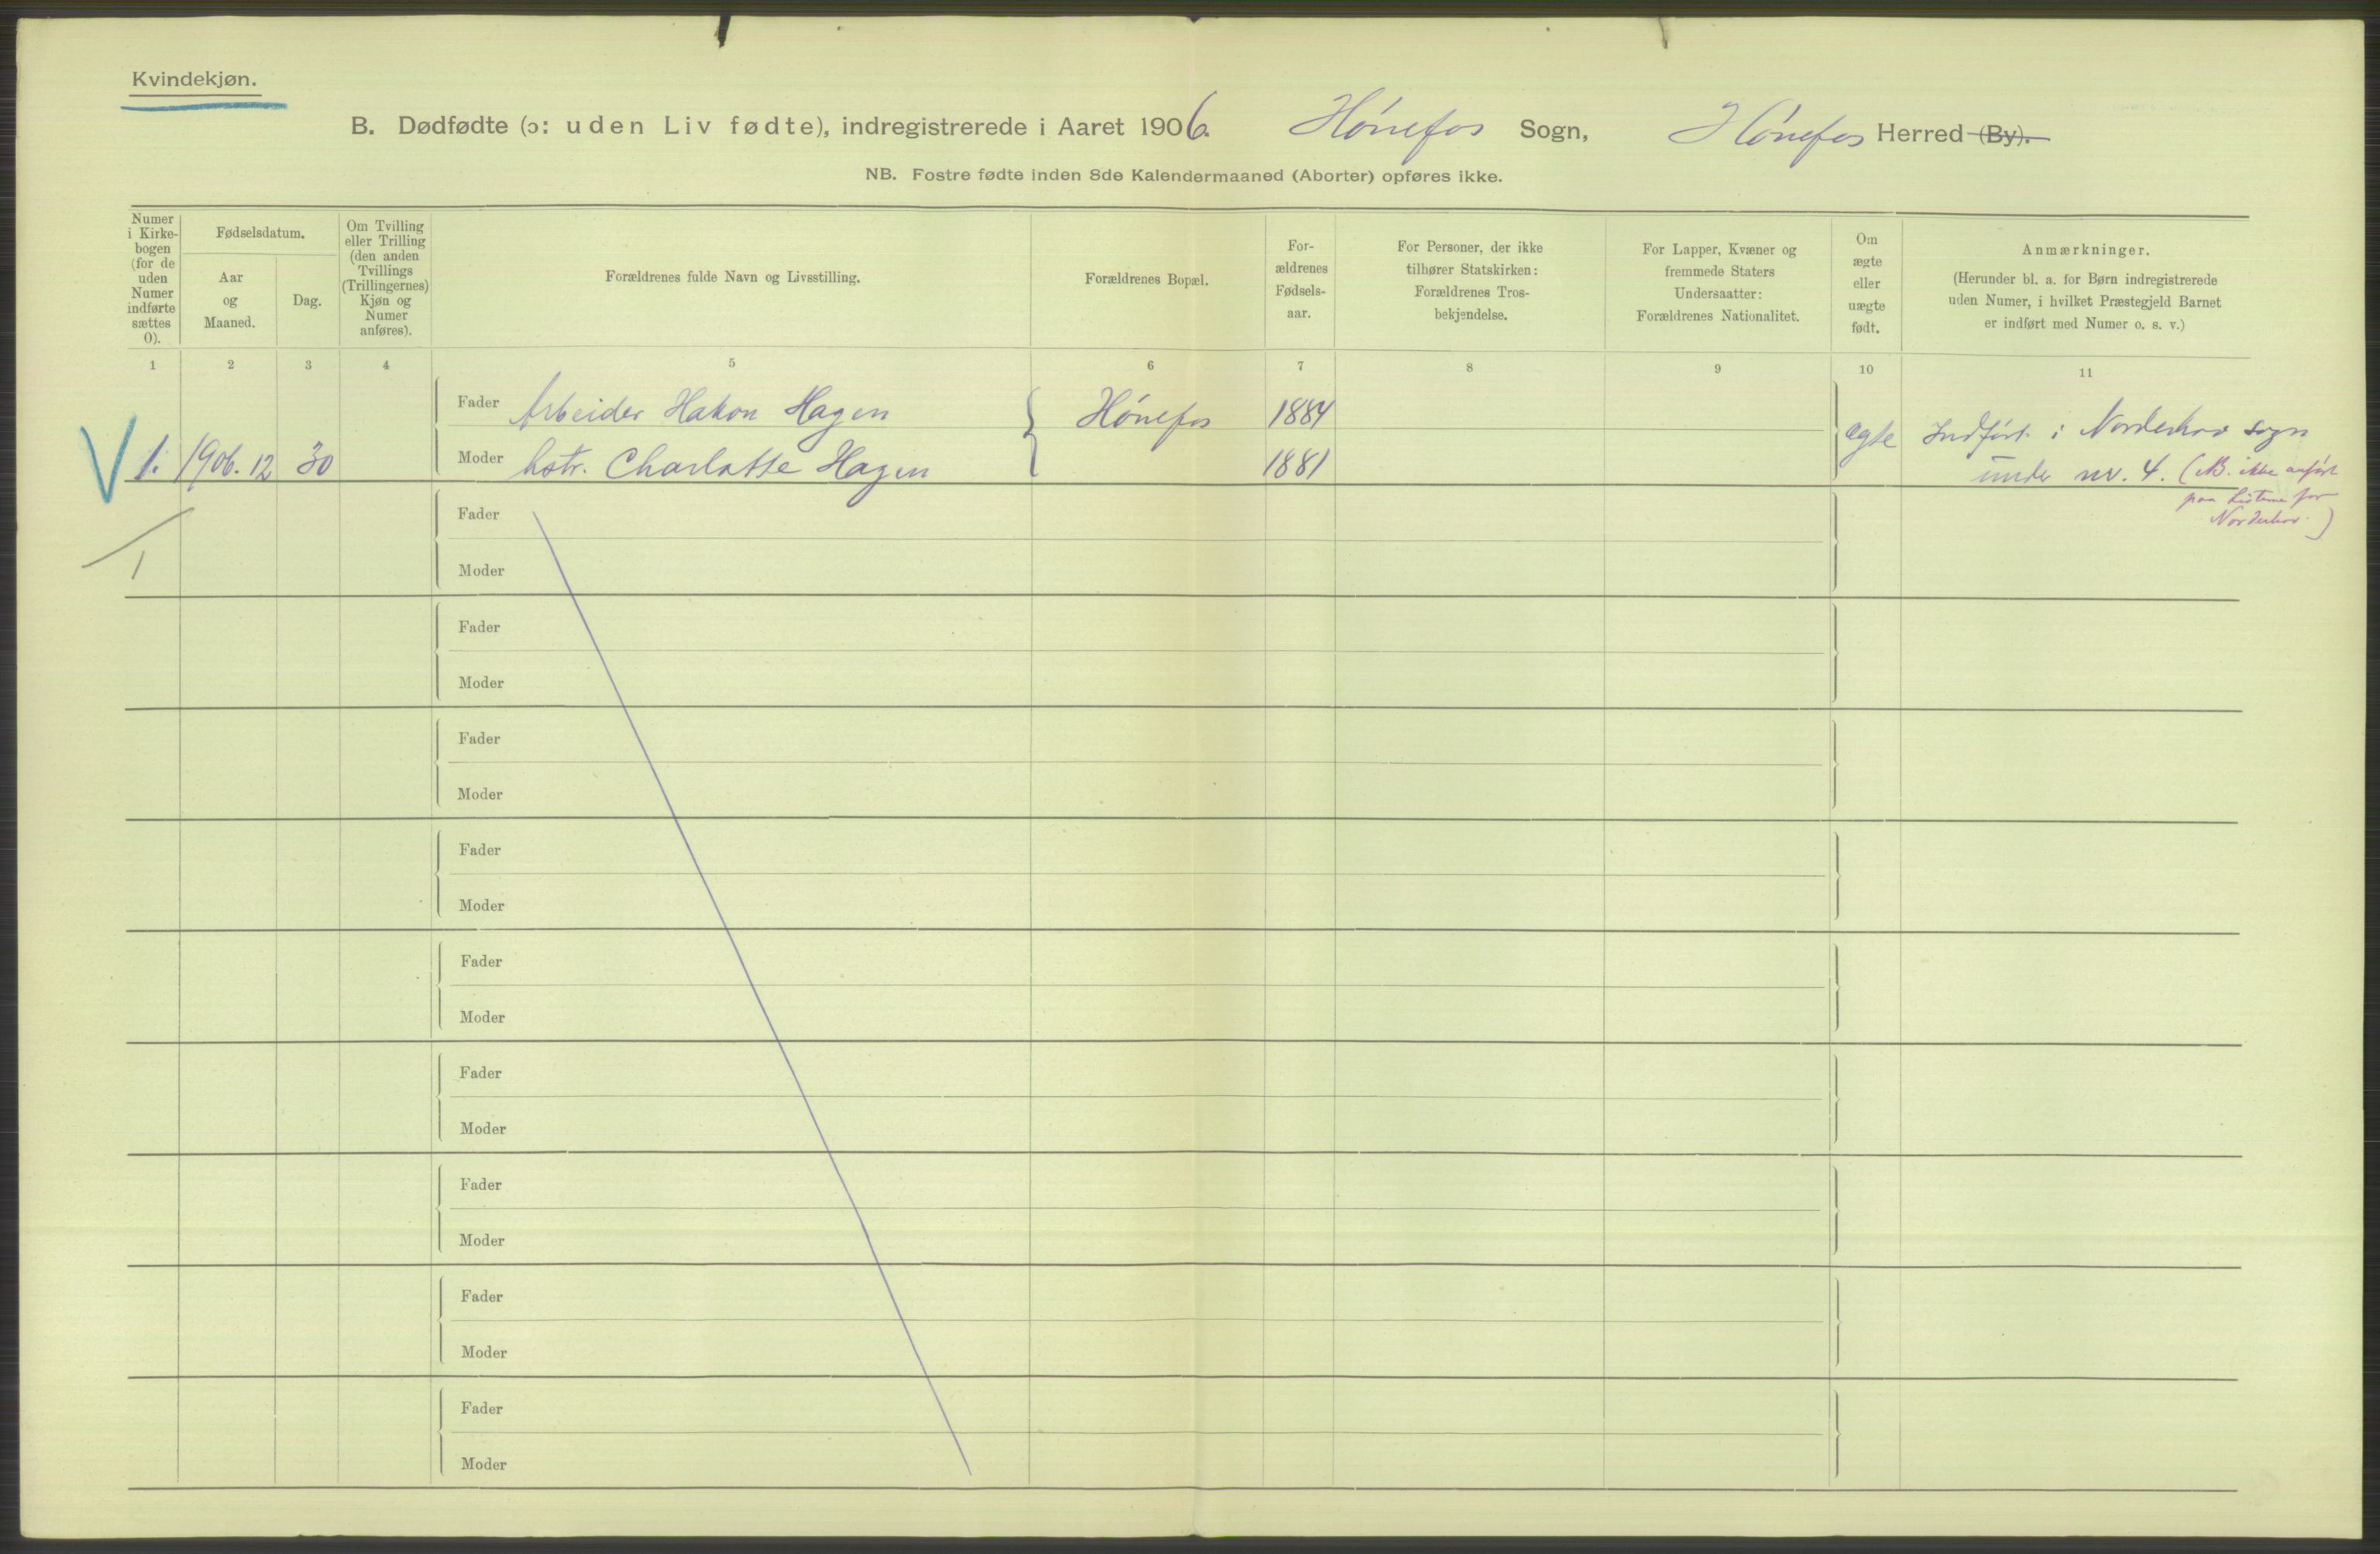 Kvindekjøn.
B. Dødfødte (ɔ: uden Liv fødte), indregistrerede i Aaret 1906. Hønefos Sogn, Hønefos Herred (By).
NB. Fostre fødte inden 8de Kalendermaaned (Aborter) opføres ikke.
Numer
i Kirke-
bogen
(for de
uden
Numer
indførte
sættes
0).
Fødselsdatum.
Aar
og
Maaned.
Dag.
Om Tvilling
eller Trilling
(den anden
Tvillings
(Trillingernes)
Kjøn og
Numer
anføres).
Forældrenes fulde Navn og Livsstilling.
Forældrenes Bopæl.
For-
ældrenes
Fødsels-
aar.
For Personer, der ikke
tilhører Statskirken:
Forældrenes Tros-
bekjendelse.
For Lapper, Kvæner og
fremmede Staters
Undersaatter:
Forældrenes Nationalitet.
Om
ægte
eller
uægte
født.
Anmærkninger.
(Herunder bl. a. for Børn indregistrerede
uden Numer, i hvilket Præstegjeld Barnet
er indført med Numer o. s. v.)
1 2 3 4 5 6 7 8 9 10 11
Fader Arbeider Hakon Hagen Hønefos 1884
1. 1906. 12 30 Moder hstr. Charlotte Hagen 1881 ægte
Indført i Norderhov sogn
under nr. 4. (NB. ikke anført
paa Listerne for
Norderhov.)
1
Fader
Moder
Fader
Moder
Fader
Moder
Fader
Moder
Fader
Moder
Fader
Moder
Fader
Moder
Fader
Moder
Fader
Moder